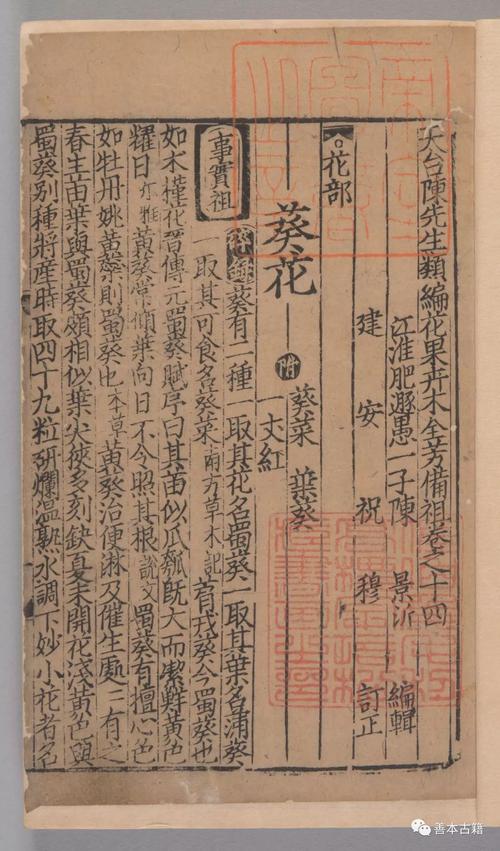 天台陳先生類編花果卉木全芳備祖卷之十四
江淮肥遯愚一子陳 景沂 編輯
建 安 祝 穆 訂正
花部
葵花 附 葵菜 葉葵
一丈紅
事實祖
碎錄 葵有二種一取其花名蜀葵一取其葉名蒲葵
一取其可食名葵菜 南方草木記 菺戎葵今蜀葵也
如木槿花晉傅元蜀葵賦序曰其苗似瓜瓠既大而潔鮮黃色
耀日 爾雅 黃葵常傾葉向日不令照其根 說文 蜀葵有擅心色
如牡丹姚黃蘂則蜀葵也 本草 黃葵治便淋及催生處〻有之
春生苗葉與蜀葵頗相似葉尖狹多刻缺夏末開花淺黃色與
蜀葵別種將產時取四十九粒研爛溫熟水調下妙小花者名
善本古籍